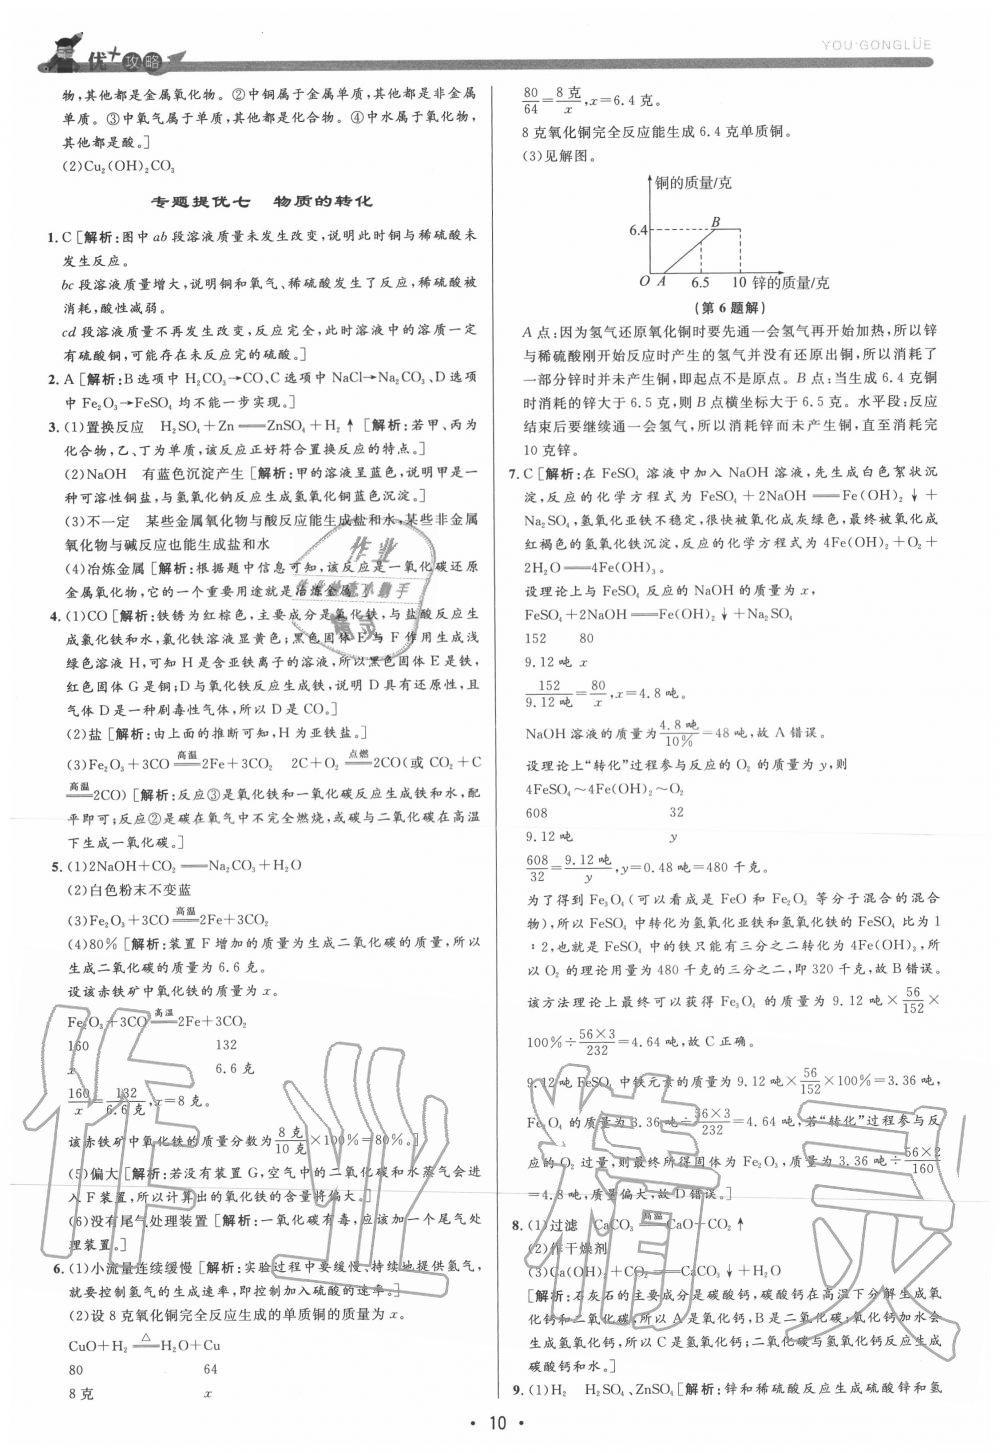 优+攻略
YOU·GONGLÜE
物,其他都是金属氧化物。②中铜属于金属单质,其他都是非金属
单质。③中氧气属于单质,其他都是化合物。④中水属于氧化物,
其他都是酸。]
(2)Cu₂(OH)₂CO₃
专题提优七 物质的转化
1. C [解析:图中 ab 段溶液质量未发生改变,说明此时铜与稀硫酸未
发生反应。
bc 段溶液质量增大,说明铜和氧气、稀硫酸发生了反应,稀硫酸被
消耗,酸性减弱。
cd 段溶液质量不再发生改变,反应完全,此时溶液中的溶质一定
有硫酸铜,可能存在未反应完的硫酸。]
2. A [解析:B选项中 H₂CO₃→CO、C选项中 NaCl→Na₂CO₃、D选项
中 Fe₂O₃→FeSO₄ 均不能一步实现。]
3. (1)置换反应 H₂SO₄+Zn══ZnSO₄+H₂↑ [解析:若甲、丙为
化合物,乙、丁为单质,该反应正好符合置换反应的特点。]
(2)NaOH 有蓝色沉淀产生 [解析:甲的溶液呈蓝色,说明甲是一
种可溶性铜盐,与氢氧化钠反应生成氢氧化铜蓝色沉淀。]
(3)不一定 某些金属氧化物与酸反应能生成盐和水,某些非金属
氧化物与碱反应也能生成盐和水
(4)冶炼金属 [解析:根据题中信息可知,该反应是一氧化碳还原
金属氧化物,它的一个重要用途就是冶炼金属。]
4. (1)CO [解析:铁锈为红棕色,主要成分是氧化铁,与盐酸反应生
成氯化铁和水,氯化铁溶液显黄色;黑色固体 E 与 F 作用生成浅
绿色溶液 H,可知 H 是含亚铁离子的溶液,所以黑色固体 E 是铁,
红色固体 G 是铜;D 与氧化铁反应生成铁,说明 D 具有还原性,且
气体 D 是一种剧毒性气体,所以 D 是 CO。]
(2)盐 [解析:由上面的推断可知,H 为亚铁盐。]
(3)Fe₂O₃+3CO ══高温 2Fe+3CO₂ 2C+O₂ ══点燃 2CO(或 CO₂+C
══高温 2CO) [解析:反应③是氧化铁和一氧化碳反应生成铁和水,配
平即可;反应②是碳在氧气中不完全燃烧,或碳与二氧化碳在高温
下生成一氧化碳。]
5. (1)2NaOH+CO₂══Na₂CO₃+H₂O
(2)白色粉末不变蓝
(3)Fe₂O₃+3CO ══高温 2Fe+3CO₂
(4)80% [解析:装置 F 增加的质量为生成二氧化碳的质量,所以
生成二氧化碳的质量为 6.6 克。
设该赤铁矿中氧化铁的质量为 x。
Fe₂O₃+3CO ══高温 2Fe+3CO₂
160 132
x 6.6 克
160/x=132/6.6 克,x=8 克。
该赤铁矿中氧化铁的质量分数为 8 克/10 克×100%=80%。]
(5)偏大 [解析:若没有装置 G,空气中的二氧化碳和水蒸气会进
入 F 装置,所以计算出的氧化铁的含量将偏大。]
(6)没有尾气处理装置 [解析:一氧化碳有毒,应该加一个尾气处
理装置。]
6. (1)小流量连续缓慢 [解析:实验过程中要缓慢、持续地提供氢气,
就要控制氢气的生成速率,即控制加入硫酸的速率。]
(2)设 8 克氧化铜完全反应生成的单质铜的质量为 x。
CuO+H₂ ══△ H₂O+Cu
80 64
8 克 x
80/64=8 克/x,x=6.4 克。
8 克氧化铜完全反应能生成 6.4 克单质铜。
(3)见解图。
铜的质量/克
6.4
B
O A 6.5 10 锌的质量/克
(第 6 题解)
A 点:因为氢气还原氧化铜时要先通一会氢气再开始加热,所以锌
与稀硫酸刚开始反应时产生的氢气并没有还原出铜,所以消耗了
一部分锌时并未产生铜,即起点不是原点。B 点:当生成 6.4 克铜
时消耗的锌大于 6.5 克,则 B 点横坐标大于 6.5 克。水平段:反应
结束后要继续通一会氢气,所以消耗锌而未产生铜,直至消耗完
10 克锌。
7. C [解析:在 FeSO₄ 溶液中加入 NaOH 溶液,先生成白色絮状沉
淀,反应的化学方程式为 FeSO₄+2NaOH══Fe(OH)₂↓+
Na₂SO₄,氢氧化亚铁不稳定,很快被氧化成灰绿色,最终被氧化成
红褐色的氢氧化铁沉淀,反应的化学方程式为 4Fe(OH)₂+O₂+
2H₂O══4Fe(OH)₃。
设理论上与 FeSO₄ 反应的 NaOH 的质量为 x,
FeSO₄+2NaOH══Fe(OH)₂↓+Na₂SO₄
152 80
9.12 吨 x
152/9.12 吨=80/x,x=4.8 吨。
NaOH 溶液的质量为 4.8 吨/10%=48 吨,故 A 错误。
设理论上“转化”过程参与反应的 O₂ 的质量为 y,则
4FeSO₄~4Fe(OH)₂~O₂
608 32
9.12 吨 y
608/32=9.12 吨/y,y=0.48 吨=480 千克。
为了得到 Fe₃O₄(可以看成是 FeO 和 Fe₂O₃ 等分子混合的混合
物),所以 FeSO₄ 中转化为氢氧化亚铁和氢氧化铁的 FeSO₄ 比为 1
:2,也就是 FeSO₄ 中的铁只能有三分之二转化为 4Fe(OH)₃,所
以 O₂ 的理论用量为 480 千克的三分之二,即 320 千克,故 B 错误。
该方法理论上最终可以获得 Fe₃O₄ 的质量为 9.12 吨×56/152×
100%÷56×3/232=4.64 吨,故 C 正确。
9.12 吨 FeSO₄ 中铁元素的质量为 9.12 吨×56/152×100%=3.36 吨,
Fe₃O₄ 的质量为 3.36 吨÷56×3/232=4.64 吨,若“转化”过程参与反
应的 O₂ 过量,则最终所得固体为 Fe₂O₃,质量为 3.36 吨÷56×2/160
=4.8 吨,质量偏大,故 D 错误。]
8. (1)过滤 CaCO₃ ══高温 CaO+CO₂↑
(2)作干燥剂
(3)Ca(OH)₂+CO₂══CaCO₃↓+H₂O
[解析:石灰石的主要成分是碳酸钙,碳酸钙在高温下分解生成氧
化钙和二氧化碳,所以 A 是氧化钙,B 是二氧化碳;氧化钙加水会
生成氢氧化钙,所以 C 是氢氧化钙;二氧化碳与氢氧化钙反应生成
碳酸钙和水。]
9. (1)H₂ H₂SO₄、ZnSO₄ [解析:锌和稀硫酸反应生成硫酸锌和氢
· 10 ·
作业精灵
作业
作业快充小助手
精灵